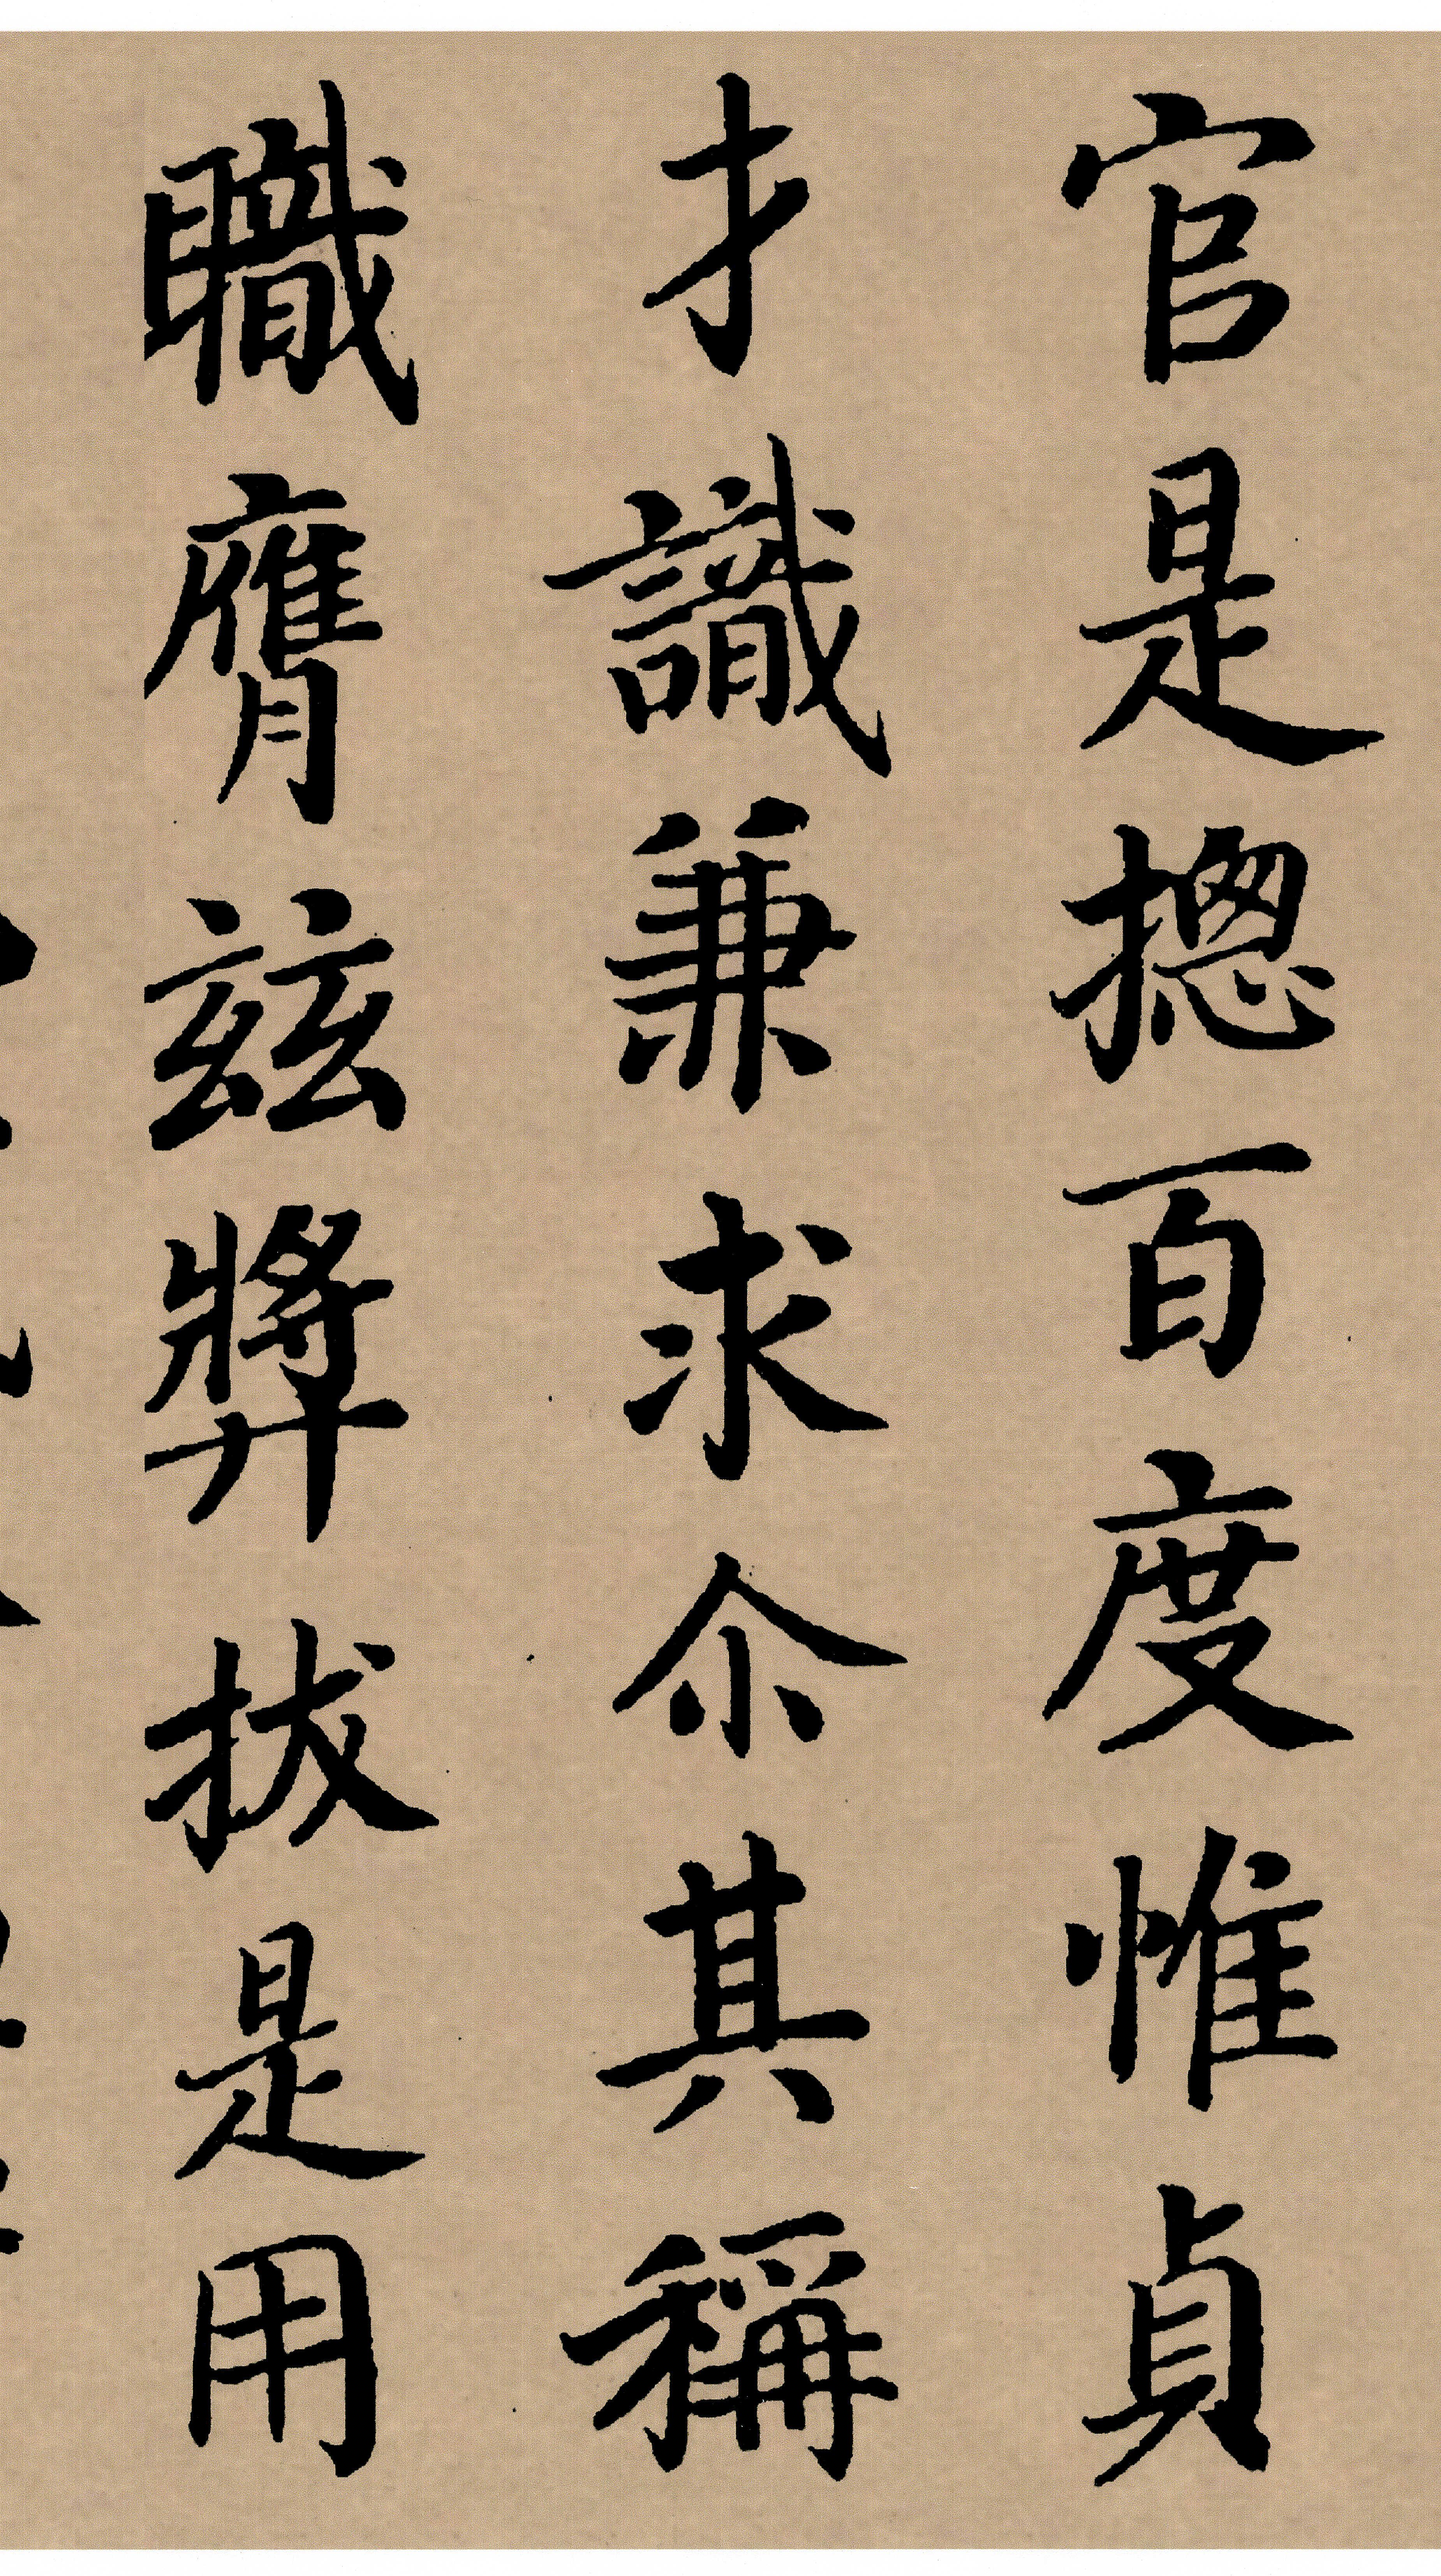 官是揔百度惟貞
才識兼求尒其稱
職膺茲獎拔是用